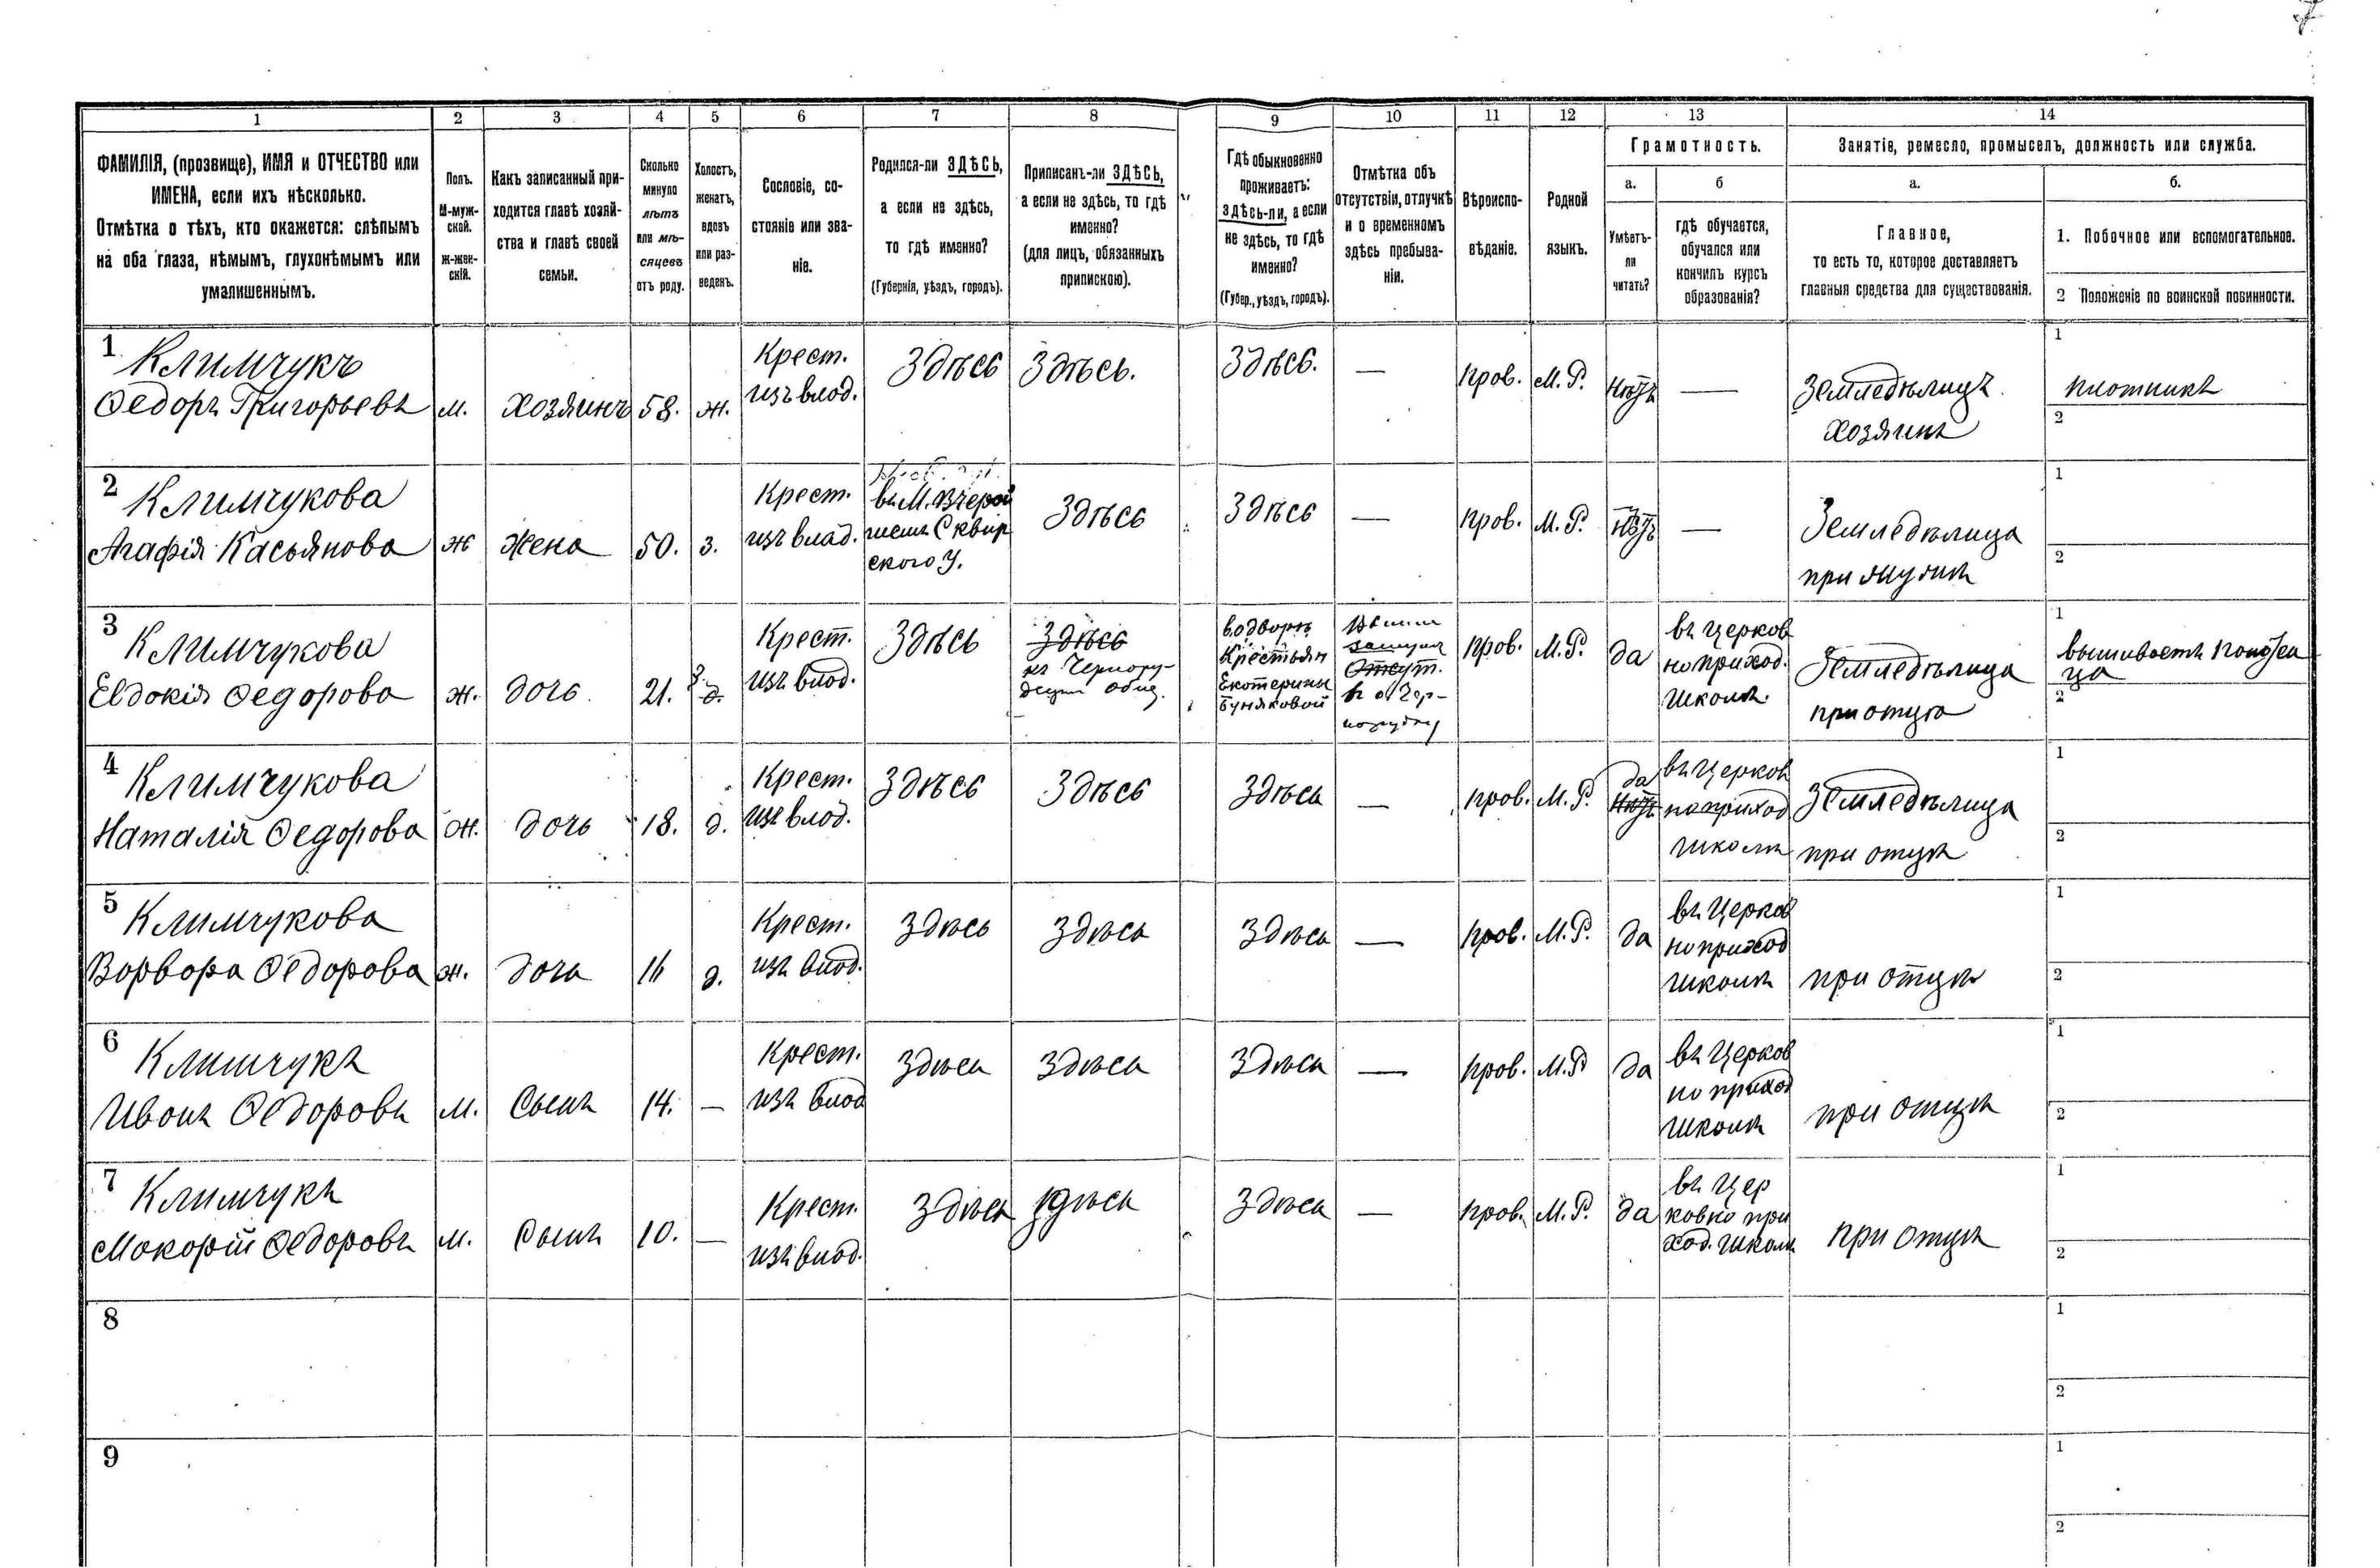 1 2 3 4 5 6 7 8 9 10 11 12 13 14
ФАМИЛІЯ, (прозвище), ИМЯ и ОТЧЕСТВО или
ИМЕНА, если ихъ нѣсколько.
Отмѣтка о тѣхъ, кто окажется: слѣпымъ
на оба глаза, нѣмымъ, глухонѣмымъ или
умалишеннымъ.
Полъ.
М-муж-
ской.
ж-жен-
скій.
Какъ записанный при-
ходится главѣ хозяй-
ства и главѣ своей
семьи.
Сколько
минуло
лѣтъ
или мѣ-
сяцевъ
отъ роду.
Холостъ,
женатъ,
вдовъ
или раз-
веденъ.
Сословіе, со-
стояніе или зва-
ніе.
Родился-ли ЗДѢСЬ,
а если не здѣсь,
то гдѣ именно?
(Губернія, уѣздъ, городъ).
Приписанъ-ли ЗДѢСЬ,
а если не здѣсь, то гдѣ
именно?
(для лицъ, обязанныхъ
припискою).
Гдѣ обыкновенно
проживаетъ:
здѣсь-ли, а если
не здѣсь, то гдѣ
именно?
(Губер., уѣздъ, городъ).
Отмѣтка объ
отсутствіи, отлучкѣ
и о временномъ
здѣсь пребыва-
ніи.
Вѣроиспо-
вѣданіе.
Родной
языкъ.
Грамотность.
а.
Умѣетъ-
ли
читать?
б
гдѣ обучается,
обучался или
кончилъ курсъ
образованія?
Занятіе, ремесло, промыселъ, должность или служба.
а.
Главное,
то есть то, которое доставляетъ
главныя средства для существованія.
б.
1. Побочное или вспомогательное.
2 Положеніе по воинской повинности.
1
Климчукъ
Федоръ Григорьевъ
м.
хозяинъ
58.
ж.
Крест.
изъ влад.
Здѣсь
Здѣсь.
Здѣсь.
—
прав.
М.Р.
нѣтъ
—
Земледѣлицъ
хозяинъ
1
плотникъ
2
2
Климчукова
Агафія Касьянова
ж
жена
50.
з.
Крест.
изъ влад.
въ М. Вчерай
шемъ Сквир
ского У.
Здѣсь
Здѣсь
—
прав.
М.Р.
нѣтъ
—
Земледѣлица
при мужи
1
2
3
Климчукова
Евдокія Федорова
ж.
дочь.
21.
з.
д.
Крест.
изъ влад.
Здѣсь
Здѣсь
въ дворѣ
Крестьян
Екатерины
Буняковой
Отсут.
прав.
М.Р.
да
въ церков
но приход.
школѣ.
Земледѣлица
при отцѣ
1
вышиваетъ
2
4
Климчукова
Наталія Федорова
ж.
дочь
18.
д.
Крест.
изъ влад.
Здѣсь
Здѣсь
Здѣсь
—
прав.
М.Р.
да
нѣтъ
въ церков
но приход
школѣ
Земледѣлица
при отцѣ
1
2
5
Климчукова
Варвара Федорова
ж.
дочь
16
д.
Крест.
изъ влад.
Здѣсь
Здѣсь
Здѣсь
—
прав.
М.Р.
да
въ церков
но приход
школѣ
при отцѣ
1
2
6
Климчукъ
Иванъ Федоровъ
м.
Сынъ
14.
—
Крест.
изъ влад
Здѣсь
Здѣсь
Здѣсь
—
прав.
М.Р
да
въ церков
но приход
школѣ
при отцѣ
1
2
7
Климчукъ
Макарій Федоровъ
м.
Сынъ
10.
—
Крест.
изъ влад.
Здѣсь
Здѣсь
Здѣсь
—
прав.
М.Р.
да
въ цер
ковно при
ход. школѣ
при отцѣ
1
2
8
1
2
9
1
2